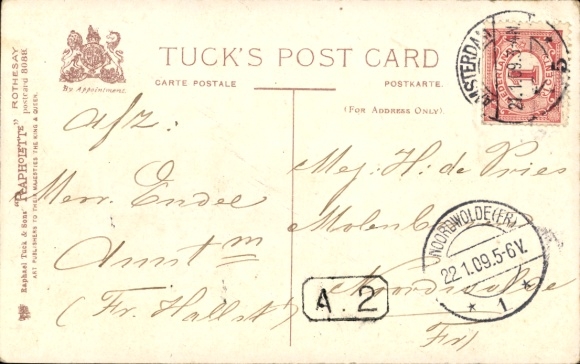 TUCK'S POST CARD
CARTE POSTALE
POSTKARTE.
(FOR ADDRESS ONLY)
By Appointment.
Raphael Tuck & Sons' "RAPHOLETTE" ROTHESAY
ART PUBLISHERS TO THEIR MAJESTIES THE KING & QUEEN. postcard 808K
AMSTERDAM
21.1.09.
5
NEDERLAND
1
CENT
afz:
Amst m
(Fr. Halsst)
Mej. H: de Vries
Molenb
Noordwolde
Fr)
NOORDWOLDE (FR)
22.1.09.5-6V.
* 1 *
A. 2